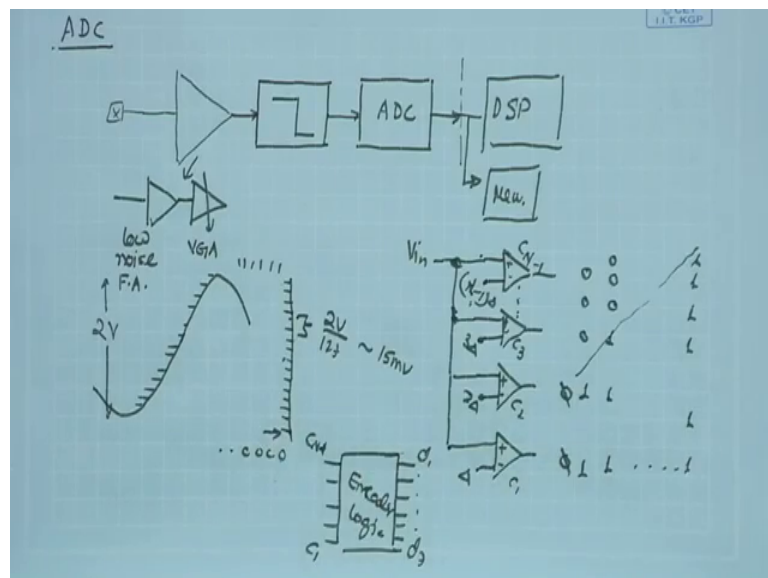 ADC
© CET
I.I.T. KGP
ADC
DSP
Mem.
low
noise
F.A.
VGA
Vin
2V
2V
127
~ 15mV
..0000
+
-
CN-1
(N-1)Δ
3Δ
C3
2Δ
C2
Δ
C1
0
0
0
0
0
0
1
0 1 1
0 1 1 .... 1
1
1
1
1
1
CN-1
C1
Encoder
logic
d1
d7